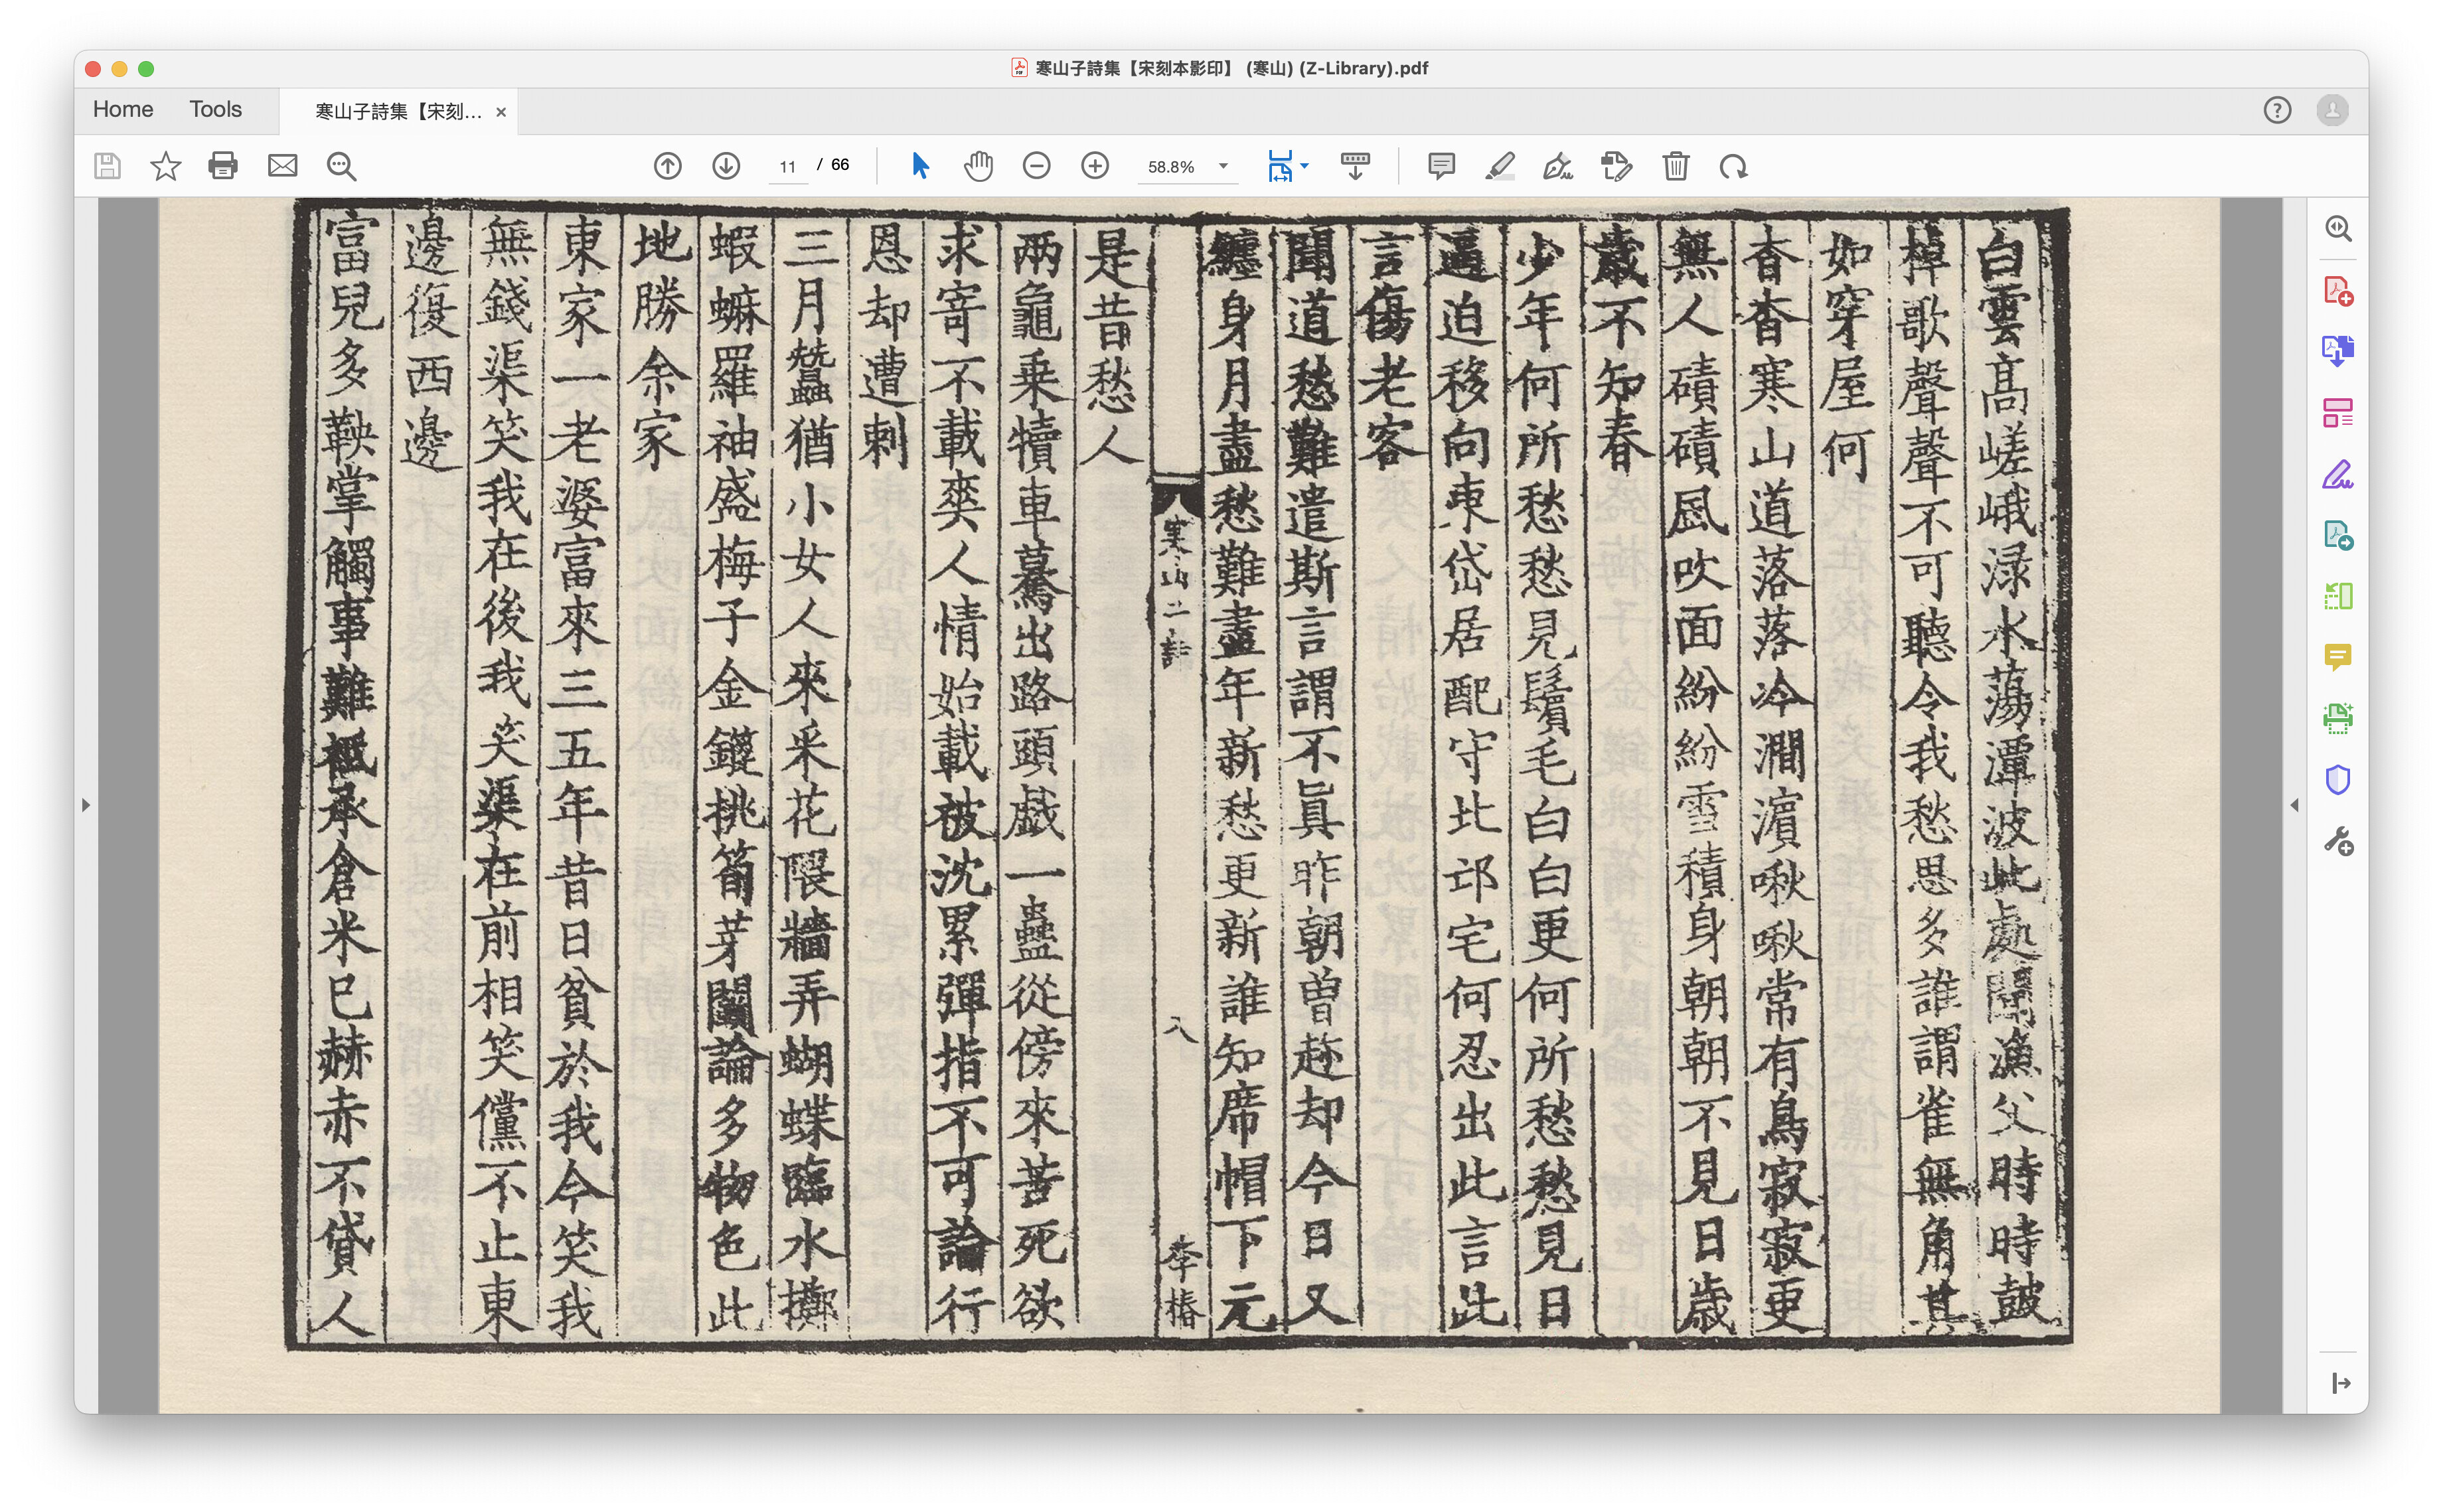 寒山子詩集【宋刻本影印】 (寒山) (Z-Library).pdf
Home
Tools
寒山子詩集【宋刻...
11 / 66
58.8%
白雲高嵯峨渌水蕩潭波此處聞漁父時時皷
棹歌聲聲不可聽令我愁思多誰謂雀無角其
如穿屋何
杳杳寒山道落落冷澗濵啾啾常有鳥寂寂更
無人磧磧風吹面紛紛雪積身朝朝不見日歳
歳不知春
少年何所愁愁見鬢毛白白更何所愁愁見日
逼迫移向東岱居配守北邙宅何忍出此言此
言傷老客
聞道愁難遣斯言謂不眞昨朝曽趂却今日又
纏身月盡愁難盡年新愁更新誰知席帽下元
寒山子詩
八
李椿
是昔愁人
兩龜乗犢車驀出路頭戯一蠱從傍來苦死欲
求寄不載爽人情始載被沈累彈指不可論行
恩却遭刺
三月蠶猶小女人來采花隈牆弄蝴蝶臨水擲
蝦蟆羅袖盛梅子金鎞挑筍芽鬭論多物色此
地勝余家
東家一老婆富來三五年昔日貧於我今笑我
無錢渠笑我在後我笑渠在前相笑儻不止東
邊復西邊
富兒多鞅掌觸事難祗承倉米已赫赤不貸人